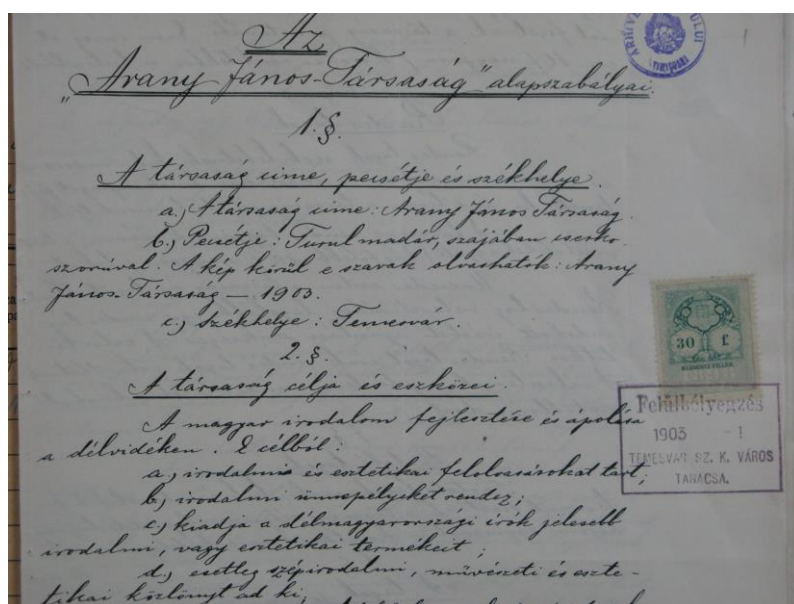 Az
„Arany János-Társaság" alapszabályai.
1. §.
A társaság címe, pecsétje és székhelye.
a.) A társaság címe: Arany János Társaság.
b.) Pecsétje: Turul madár, szájában cserko-
szorúval. A kép körül e szavak olvashatók: Arany
János-Társaság — 1903.
c.) Székhelye: Temesvár.
2. §.
A társaság célja és eszközei.
A magyar irodalom fejlesztése és ápolása
a délvidéken. E célból:
a.) irodalmi és esztetikai felolvasásokat tart;
b.) irodalmi ünnepélyeket rendez;
c.) kiadja a délmagyarországi írók jelesebb
irodalmi, vagy esztetikai termékeit;
d.) esetleg szépirodalmi, művészeti és eszte-
tikai közlönyt ad ki,
30 f
Felülbélyegzés
1903 -1
TEMESVÁR SZ. K. VÁROS
TANÁCSA.